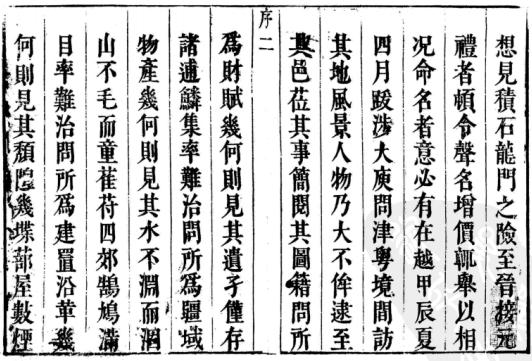 想見積石龍門之險至晉接元
禮者頓令聲名增價輒舉以相
况命名者意必有在越甲辰夏
四月跋涉大庾問津粵境間訪
其地風景人物乃大不侔逮至
其邑莅其事簡閱其圖籍問所
序二
為財賦幾何則見其遺孑僅存
諸逋鱗集率難治問所為疆域
物產幾何則見其水不淵而涸
山不毛而童萑苻四郊鵠鳩滿
目率難治問所為建置沿革幾
何則見其頹隍幾堞蔀屋數煙